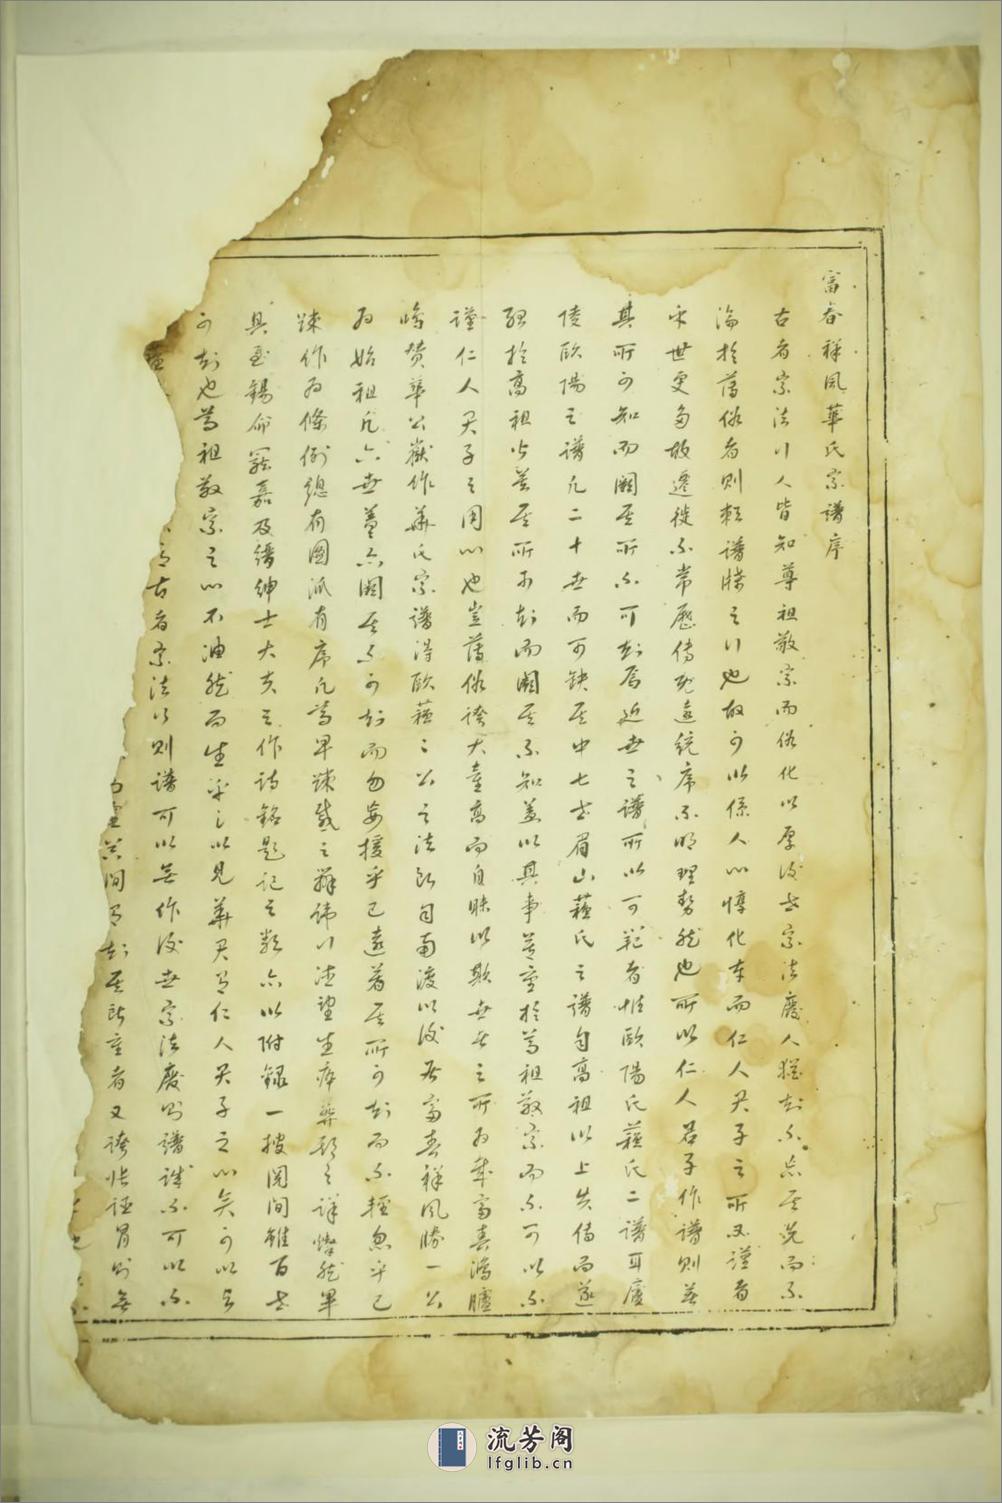 富春祥風華氏宗譜序
古者宗法行人皆知尊祖敬宗而俗化以厚後世宗法廢人猶知不忘其先而不
淪於薄俗者則賴譜牒之行也故可以係人心惇化本而仁人君子之所以謹者
世更多故遷徙不常歷傳既遠統序不明理勢然也所以仁人君子作譜則著
其所可知而闕其所不可知焉近世之譜所以可範者惟歐陽氏蘇氏二譜耳廬
陵歐陽之譜凡二十世而可缺其中七世眉山蘇氏之譜自高祖以上失傳而遂
於高祖以著其所可知而闕其不知蓋以其事莫重於尊祖敬宗而不可以不
謹仁人君子之用心也豈薄俗誇大臺高而自昧以欺世者之所為哉富春鴻臚
贊華公嶽作華氏宗譜得歐蘇二公之法自南渡以後居富春祥風勝一公
為始祖凡六世蓋亦闕其不可知而勿妄援乎已遠著其所可知而不輕忽乎已
疎作為條例總有圖派有序凡尊卑疎戚之辨諱行望生卒葬之詳燦然畢
具至錫命嘉及縉紳士大夫之作詩銘題記之類亦以附錄一披閱間雖百世
可知也尊祖敬宗之心不油然而生乎以見華君仁人君子之心矣可以
古者宗法行則譜可以無作後世宗法廢則譜誠不可以不
其間知其所重者又誇誣冒則無